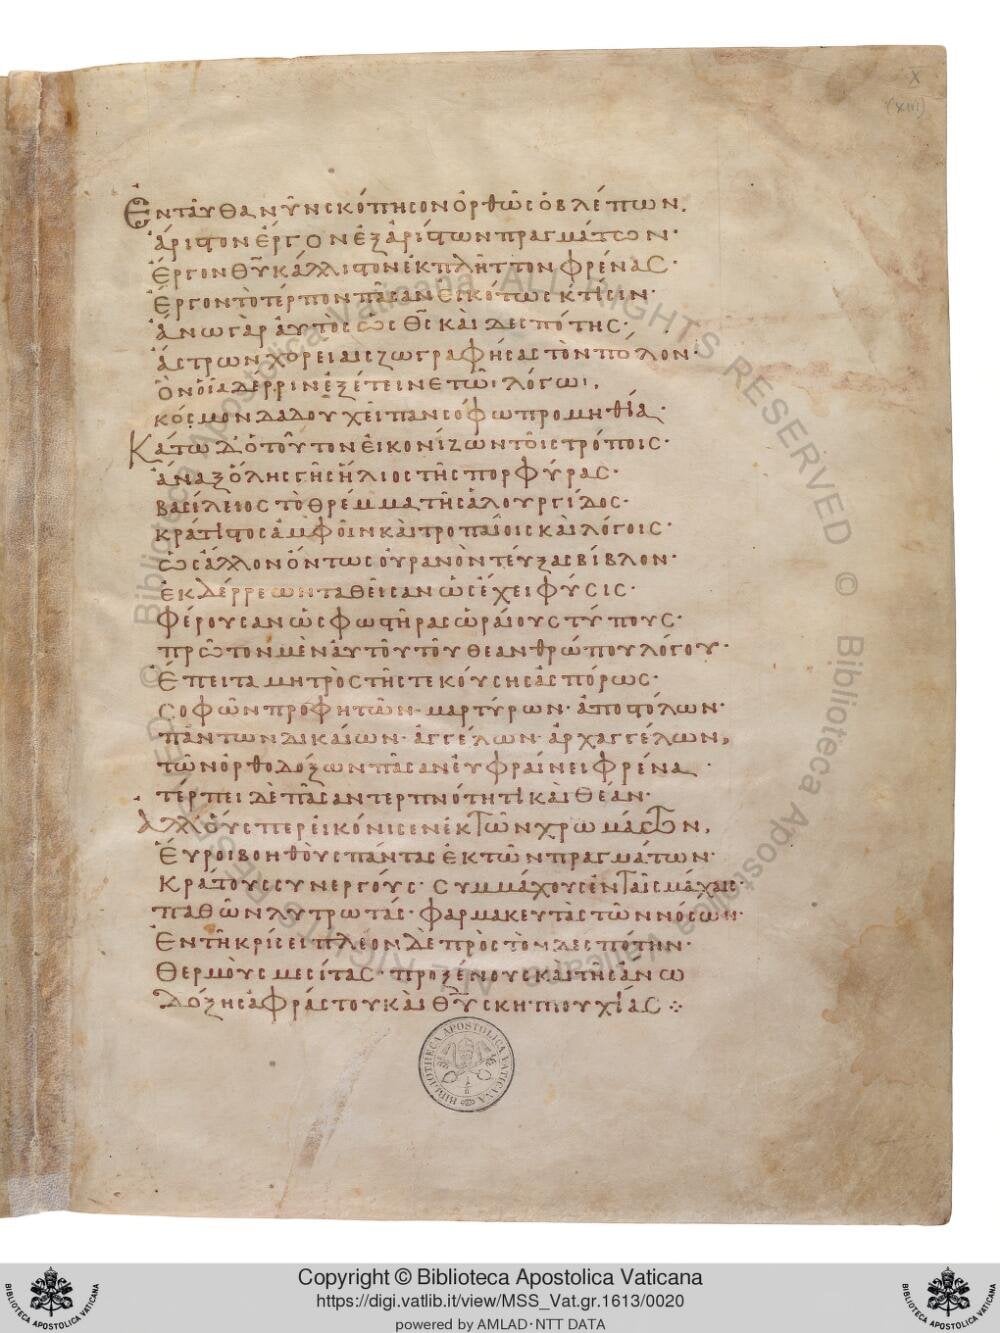 X
(XIII)
Ἐνταῦθα νῦν σκόπησον ὀρθῶς ὁ βλέπων.
ἄριστον ἔργον ἐξ ἀρίστων πραγμάτων·
ἔργον θ̅υ̅ κάλλιστον ἐκπλῆττον φρένας·
ἔργον τὸ τέρπον πᾶσαν εἰκότως κτίσιν·
ἄνω γὰρ αὐτὸς ὡς θ̅ς̅ καὶ δεσπότης·
ἄστρων χορείαις ζωγραφήσας τὸν πόλον·
ὃν οἷα δέρριν ἐξέτεινε τῶι λόγωι,
κόσμον δαδουχεῖ πανσόφω προμηθία·
Κάτω δ' ὁ τοῦτον εἰκονίζων τοῖς τρόποις·
ἄναξ ὅλης γῆς ἥλιος τῆς πορφύρας·
βασίλειος τὸ θρέμμα τῆς ἁλουργίδος·
κράτιστος ἀμφοῖν καὶ τροπαίοις καὶ λόγοις·
ὡς ἄλλον ὄντως οὐρανὸν τεύξας βίβλον·
ἐκ δέρρεων ταθεῖσαν ὡς ἔχει φύσις·
φέρουσαν ὡς φωστῆρας ὡραίους τύπους·
πρῶτον μὲν αὐτοῦ τοῦ θεανθρώπου λόγου·
ἔπειτα μητρὸς τῆς τεκούσης ἀσπόρως·
σοφῶν προφητῶν· μαρτύρων· ἀποστόλων·
πάντων δικαίων· ἀγγέλων· ἀρχαγγέλων,
τῶν ὀρθοδόξων πᾶσαν εὐφραίνει φρένα·
τέρπει δὲ πᾶσαν τερπνότητι καὶ θέαν·
ἀλλ' οὕσπερ εἰκόνισεν ἐκ τῶν χρωμάτων,
Εὕροι βοηθοὺς πάντας ἐκ τῶν πραγμάτων·
κράτους συνεργούς· συμμάχους ἐν ταῖς μάχαις·
παθῶν λυτρωτάς· φαρμακευτὰς τῶν νόσων·
Ἐν τῇ κρίσει πλέον δὲ πρὸς τὸν δεσπότην·
θερμοὺς μεσίτας· προξένους καὶ τῆς ἄνω
δόξης ἀφράστου καὶ θ̅υ̅ σκηπτουχίας ⁘
BIBLIOTHECA APOSTOLICA VATICANA
© Biblioteca Apostolica Vaticana ALL RIGHTS RESERVED
Copyright © Biblioteca Apostolica Vaticana
https://digi.vatlib.it/view/MSS_Vat.gr.1613/0020
powered by AMLAD·NTT DATA
BIBLIOTECA APOSTOLICA VATICANA
BIBLIOTECA APOSTOLICA VATICANA